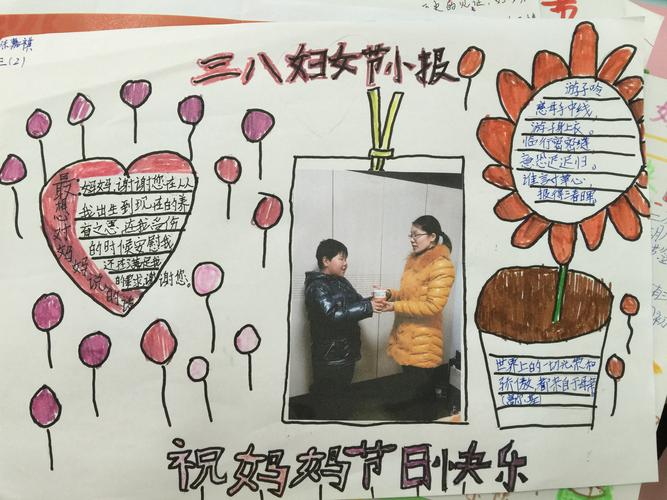 三(2)
三八妇女节小报
最想对妈妈说的话
妈妈,谢谢您在从
我出生到现在的养
育之恩,在我受伤
的时候安慰我,
还送满足我
的要求,谢谢您。
游子吟
慈母手中线,
游子身上衣。
临行密密缝
意恐迟迟归。
谁言寸草心,
报得三春晖
世界上的一切光荣和
骄傲,都来自于母亲
(高尔基)
祝妈妈节日快乐